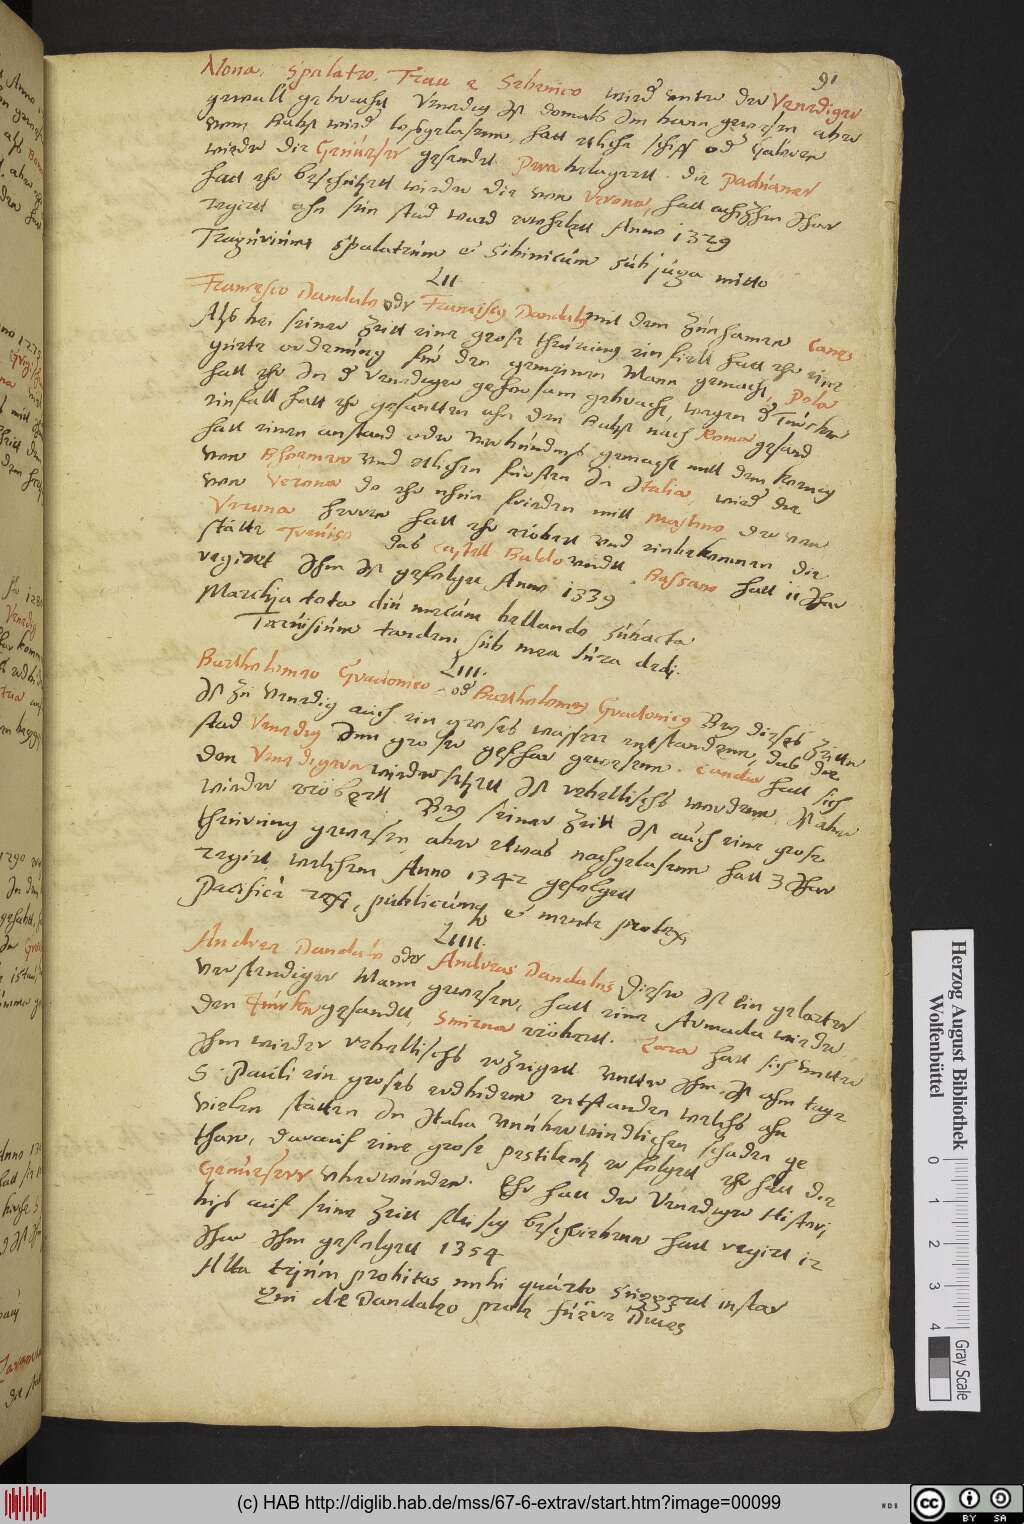 91
Nona, Spalatro, Trau e Sebenico wird unter der Venediger
gewalt gebracht Venedig ist domals im bann gewesen aber
vom Babst wird losgelasenn, hatt etliche schiff od Galeren
wieder die Genueser gesandt. Pera belagertt. die Paduaner
hatt ehr beschützett wieder die von Verona, hatt achzehn Jhar
regirt ahn sein stad ward erwehlett Anno 1329
Tragurium Spalatrum et Sibinicum sub juga mitto
LII
Francesco Dandalo oder Franciscus Dandalus mit dem Zunhamen Canes
Alhs bei seiner Zeitt eine grose theurung einfielt hatt ehr eine
guete ordenung für den gemeinen Mann gemacht, Pola
hatt ehr in d Venediger gehorsam gebracht, wegen d Türcken
einfall hatt ehr gesantten ahn den Babst nach Roma gesand
hatt einen anstand oder verbündnus gemacht mitt dem koenig
von Bhoemen und etlichen fürsten in Italia, wird die
von Verona da ehr nhun frieden mitt Mastino der von
Verona herren hatt ehr eröbert und einbekommen die
stätte Trevigo das Castell Baldo undt Bassano hatt 11 Jhar
regiret Ihm ist gefolget Anno 1339
Marchia tota diu mecum bellando subacta
Tarvisium tandem sub mea iura dedi.
LIII.
Bartholomeo Gradonico od Bartholomeus Gradonicus Bey dieses Zeitten
ist zu Venedig auch ein groses wasser entstandenn, das die
stad Venedig inn groser gefhar gewesenn. Candia hatt sich
den Venedigern wiedersetztt ist rebellisch wordenn. Ist aber
wieder eröbertt Bey seiner Zeitt ist auch eine grose
theurung gewesen aber etwas nachgelasenn hatt 3 Jhar
regirt, welchem Anno 1342 gefolgett
Pacifice rexi, publicumq et mente protexi
LIIII.
Andrea Dandalo oder Andreas Dandalus Dieser ist ein gelarter
verstendiger Mann gewesen, hatt eine Armada wieder
den Türken gesandtt, Smirna eröbertt. Zara hatt sich wieder
Ihm wieder rebellisch erzeigett Unter Ihm ist ahm tage
S. Pauli ein groses erdbidem entstanden welchs ahn
vielen stätten in Italia unüberwindlichen schaden ge
than, darauf eine grose pestilentz erfolgett ehr hatt die
Genueserr uberwunden. Ehr hatt der Venediger Histori
bis auf seine Zeitt fleisig beschriebenn hatt regirt 12
Jhar Ihm gefolgett 1354
Alta trium probitas mihi quarto suggerit instar
Qui de Dandaleo prole fuere Duces
Herzog August Bibliothek
Wolfenbüttel
0 1 2 3 4
Gray Scale
(c) HAB http://diglib.hab.de/mss/67-6-extrav/start.htm?image=00099
WDB
CC BY SA